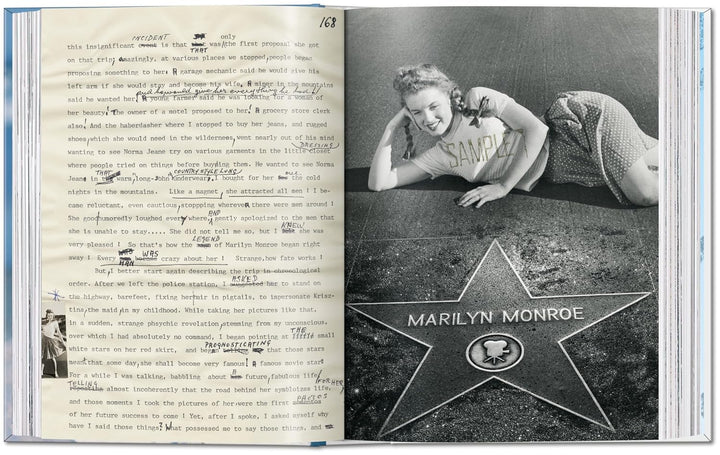 168
INCIDENT only
this insignificant event is that was/the first proposal she got
THAT
on that trip; Amazingly, at various places we stopped,people began
proposing something to her. A garage mechanic said he would give his
left arm if she would stay and become his wife, A miner in the mountains
and he would give her everything he had!
said he wanted her, A young farmer said he was looking for a woman of
her beauty! The owner of a motel proposed to her! A grocery store clerk
also! And the haberdasher where I stopped to buy her jeans, and rugged
shoes,which she would need in the wilderness,went nearly out of his mind
wanting to see Norma Jeane try on various garments in the little closet
DRESSING
where people tried on things before buying them. He wanted to see Norma
THAT COUNTRY STYLE LONG
Jeane in the warm,long-John underwear, I bought for her the cold
nights in the mountains. Like a magnet, she attracted all men ! I be-
came reluctant, even cautious, stoppping wherever there were men around !
AND
She goodhumoredly loughed every where gently apologized to the men that
KNEW
she is unable to stay..... She did not tell me so, but I she was
LEGEND
very pleased ! So that's how the of Marilyn Monroe began right
WAS
away ! Every crazy about her ! Strange,how fate works !
MAN
But,I better start again describing the trip in chronological
ASKED
order. After we left the police station, I her to stand on
the highway, barefoot, fixing her hair in pigtails, to impersonate Krisz-
tina,the maid,in my childhood. While taking her pictures at
in a sudden, strange phsychic revelation,stemming from my unconscious.
THE
over which I had absolutely no command, I began pointing at small
PROGNOSTICATING
white stars on her red skirt, and began that those stars
meant that some day,she shall become very famous! A famous movie star!
For a while I was talking, babbling about future,fabulous life!
FOR HER
TELLING
almost incoherently that the road behind her symbloizes life,
PHOTOS
and those moments I took the pictures of her were the first
of her future success to come ! Yet, after I spoke, I asked myself why
have I said those things? What possessed me to say those things, and
SAMPLE
MARILYN MONROE